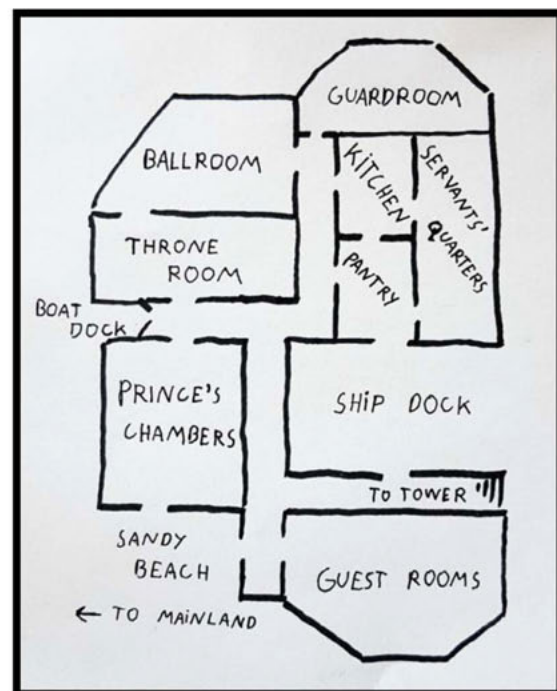 GUARDROOM
BALLROOM
KiTCHEN
SERVANTS'
QUARTERS
THRONE
ROOM
PANTRY
BOAT
DOCK
PRINCE'S
CHAMBERS
SHiP DOCK
TO TOWER
SANDY
BEACH
GUEST ROOMS
← TO MAiNLAND